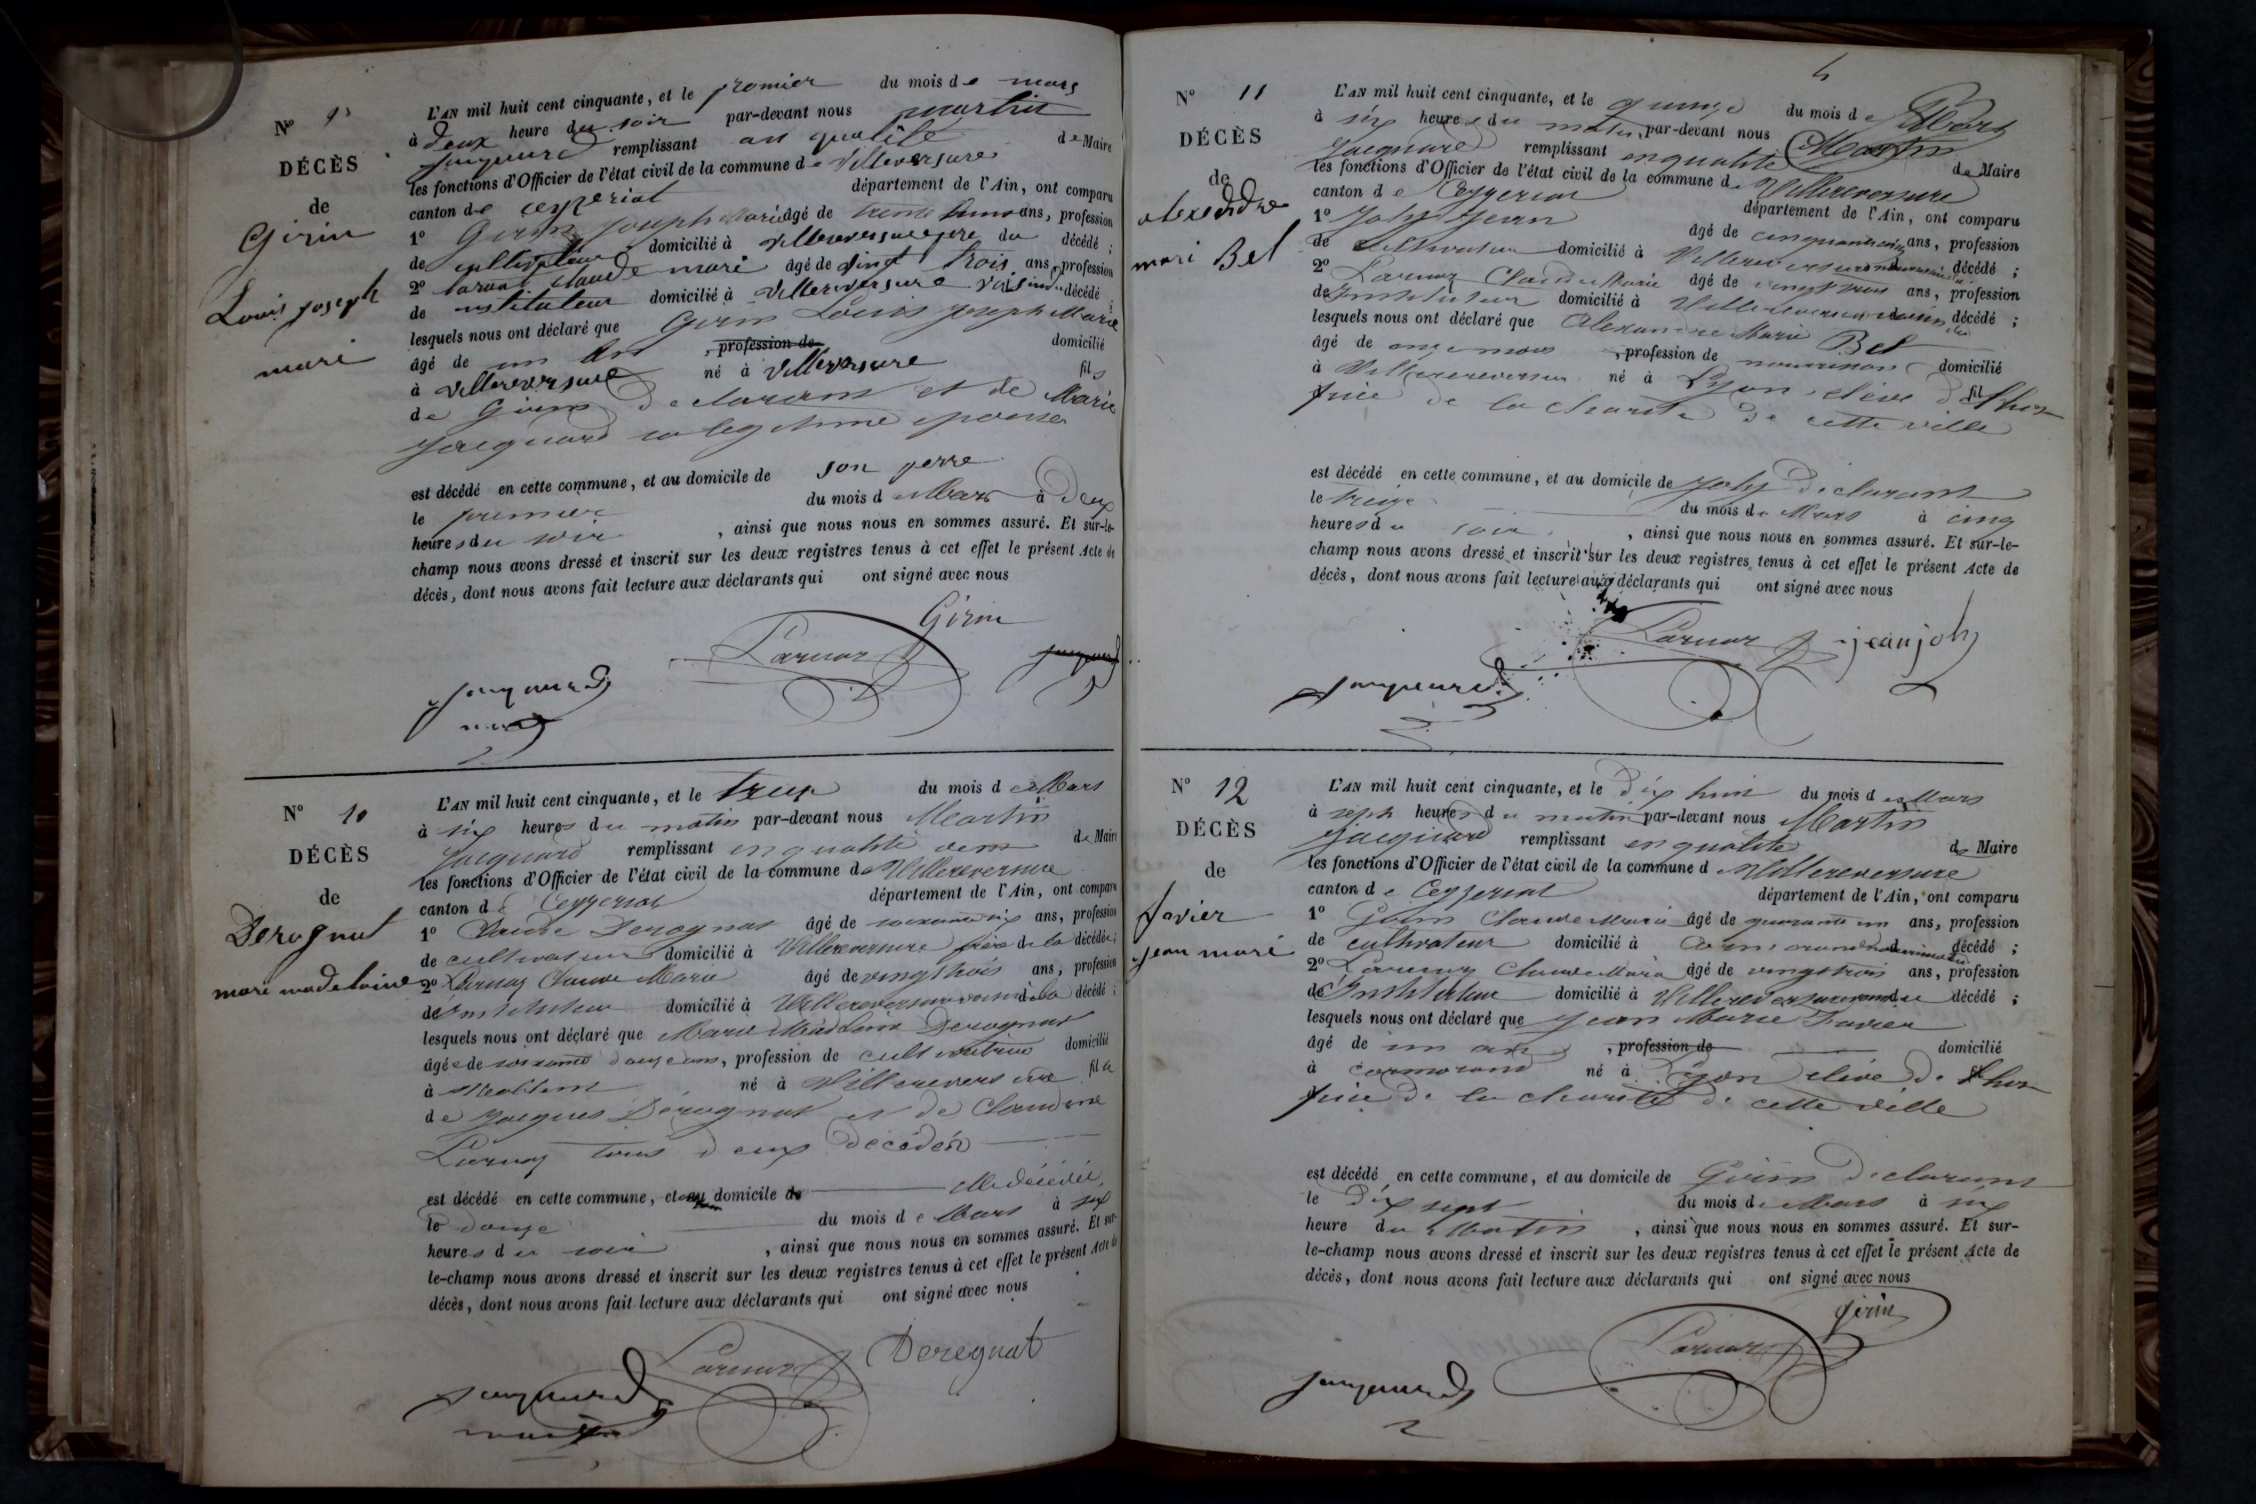 N° 9
DÉCÈS
de
Girin
Louis joseph
mari
L'AN mil huit cent cinquante, et le premier du mois de mars
à deux heure du soir par-devant nous martin
jacquard remplissant en qualité de Maire
les fonctions d'Officier de l'état civil de la commune de Villereversure
canton de ceyzeriat département de l'Ain, ont comparu
1° Girin joseph Marie âgé de trente ans, profession
de cultivateur domicilié à Villereversure pere du décédé ;
2° claude marie âgé de vingt trois ans, profession
de instituteur domicilié à Villereversure voisin du décédé ;
lesquels nous ont déclaré que Girin Louis joseph Marie
âgé de un an , profession de domicilié
à Villereversure né à Villereversure fils
de Girin declarant et de Marie
jacquard sa legitime epouse
est décédé en cette commune, et au domicile de son perre
le premier du mois de Mars à deux
heures du soir , ainsi que nous nous en sommes assuré. Et sur-le-
champ nous avons dressé et inscrit sur les deux registres tenus à cet effet le présent Acte de
décès, dont nous avons fait lecture aux déclarants qui ont signé avec nous
Girin
Larnay jacquard
jacquard
N° 10
DÉCÈS
de
Derognat
mari madelaine
L'AN mil huit cent cinquante, et le treize du mois de Mars
à six heures du matin par-devant nous Martin
Jacquard remplissant en qualité de Maire
les fonctions d'Officier de l'état civil de la commune de Villereversure
canton de Ceyzeriat département de l'Ain, ont comparu
1° Derognat âgé de soixante six ans, profession
de cultivateur domicilié à Villereversure frère de la décédée ;
2° Larnay Claude Marie âgé de vingt trois ans, profession
de Instituteur domicilié à Villereversure voisin de la décédé ;
lesquels nous ont déclaré que Marie Madelaine Derognat
âgée de soixante douze ans, profession de cultivatrice domicilié
à né à Villereversure fille
de Jacques Dérognat et de Claudine
Larnay tous deux décédés
est décédé en cette commune, et au domicile de elle décédée,
le douze du mois de Mars à six
heures du soir , ainsi que nous nous en sommes assuré. Et sur-
le-champ nous avons dressé et inscrit sur les deux registres tenus à cet effet le présent Acte de
décès, dont nous avons fait lecture aux déclarants qui ont signé avec nous
Larnay Deregnat
jacquard
4
N° 11
DÉCÈS
de
alexandre
mari Bel
L'AN mil huit cent cinquante, et le quinze du mois de Mars
à six heures du matin, par-devant nous Martin
Jacquard remplissant en qualité de Maire
les fonctions d'Officier de l'état civil de la commune de Villereversure
canton de Ceyzeriat département de l'Ain, ont comparu
1° Joly Jean âgé de cinquante ans, profession
de cultivateur domicilié à Villereversure décédé ;
2° Larnay Claude Marie âgé de vingt trois ans, profession
de Instituteur domicilié à Villereversure voisin du décédé ;
lesquels nous ont déclaré que Alexandre Marie Bel
âgé de onze mois , profession de nourrisson domicilié
à Villereversure né à Lyon élève de l'hos
pice de la charité de cette ville
est décédé en cette commune, et au domicile de Joly déclarant
le treize du mois de Mars à cinq
heures du soir , ainsi que nous nous en sommes assuré. Et sur-le-
champ nous avons dressé et inscrit sur les deux registres tenus à cet effet le présent Acte de
décès, dont nous avons fait lecture aux déclarants qui ont signé avec nous
Larnay jean joly
jacquard
N° 12
DÉCÈS
de
favier
jean mari
L'AN mil huit cent cinquante, et le dix huit du mois de Mars
à sept heures du matin par-devant nous Martin
Jacquard remplissant en qualité de Maire
les fonctions d'Officier de l'état civil de la commune d Villereversure
canton de Ceyzeriat département de l'Ain, ont comparu
1° Girin Claude Marie âgé de quarante un ans, profession
de cultivateur domicilié à décédé ;
2° Larnay Claude Marie âgé de vingt trois ans, profession
de Instituteur domicilié à Villereversure voisin du décédé ;
lesquels nous ont déclaré que Jean Marie Favier
âgé de un an , profession de domicilié
à cormorand né à Lyon élève de l'hos
pice de la charité de cette ville
est décédé en cette commune, et au domicile de Girin declarant
le dix sept du mois de Mars à six
heure du Matin , ainsi que nous nous en sommes assuré. Et sur-
le-champ nous avons dressé et inscrit sur les deux registres tenus à cet effet le présent Acte de
décès, dont nous avons fait lecture aux déclarants qui ont signé avec nous
girin
Larnay
jacquard